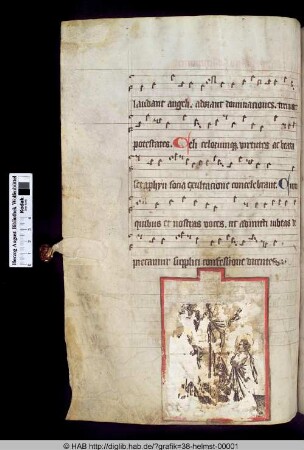 laudant angeli. adorant dominationes. tremunt
potestates. Celi celorumque virtutes ac beata
seraphyn socia exultatione concelebrant. Cum
quibus et nostras voces. ut admitti iubeas d
precamur supplici confessione dicentes
Herzog August Bibliothek Wolfenbüttel
Kodak
© HAB http://diglib.hab.de/?grafik=38-helmst-00001